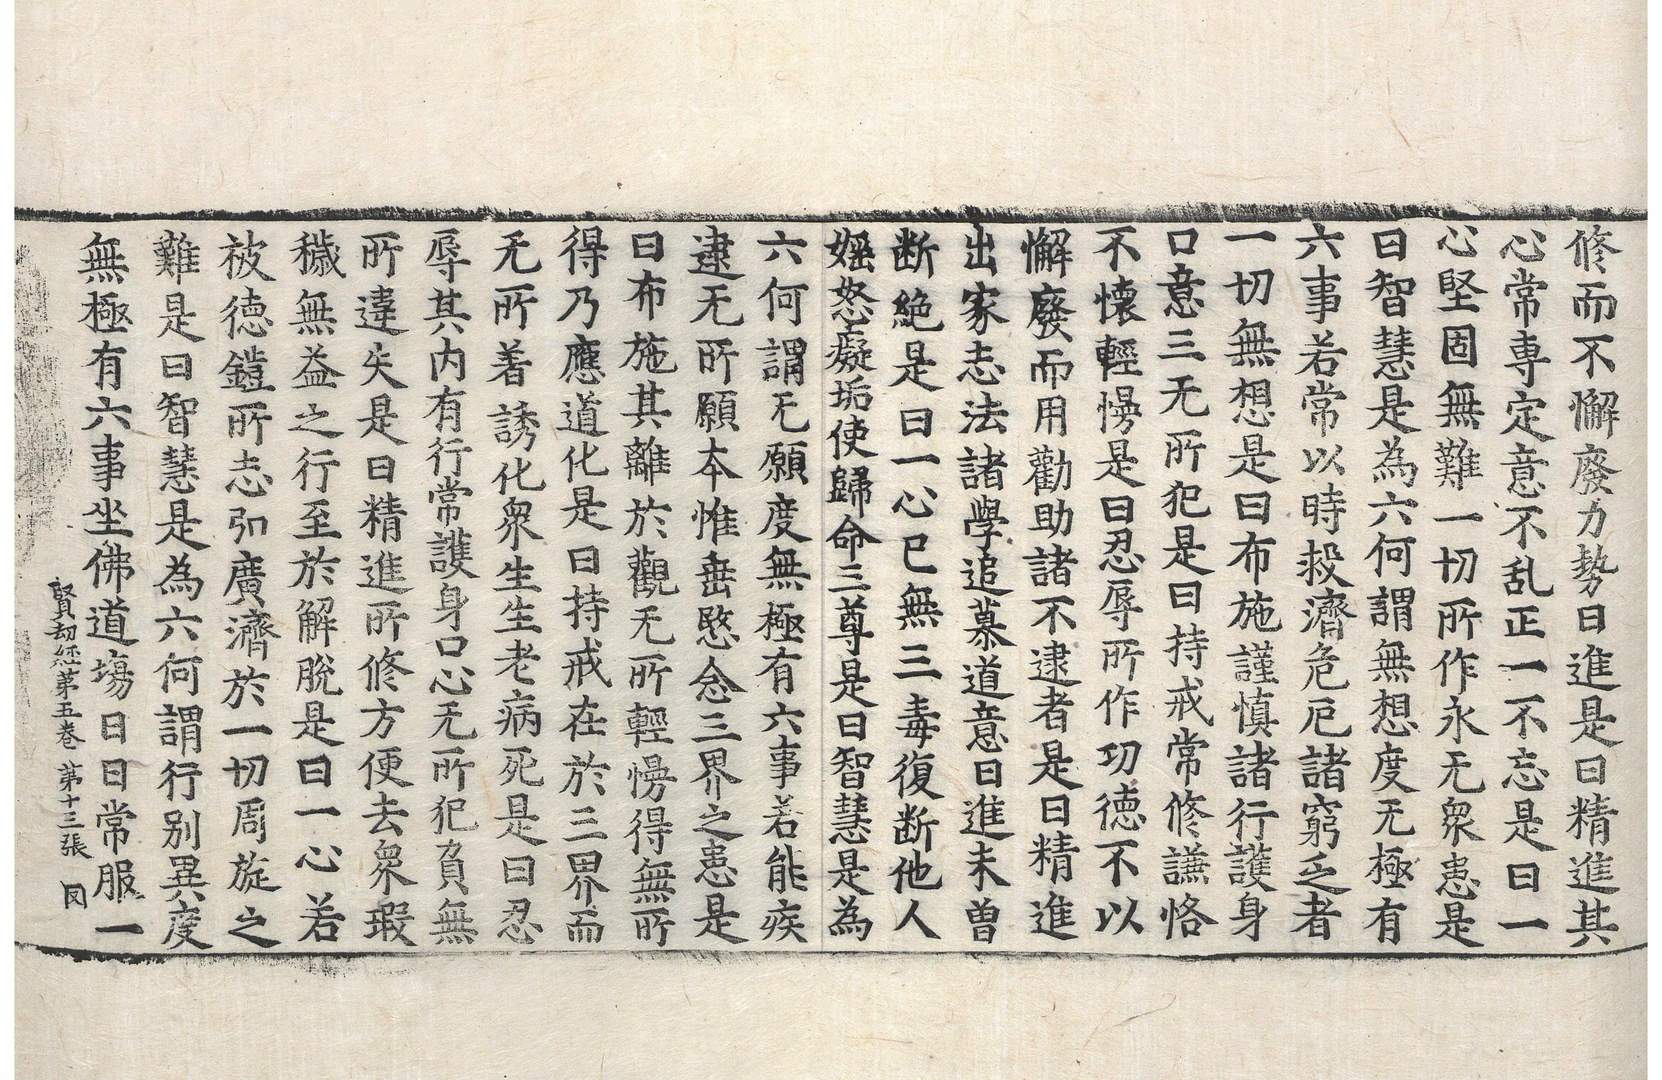 修而不懈廢力勢日進是曰精進其
心常専定意不乱正一不忘是曰一
心堅固無難一切所作永无衆患是
曰智慧是為六何謂無想度无極有
六事若常以時救濟危厄諸窮乏者
一切無想是曰布施謹慎諸行護身
口意三无所犯是曰持戒常修謙恪
不懷輕慢是曰忍辱所作功德不以
懈廢而用勸助諸不逮者是曰精進
出家志法諸學追慕道意日進未曽
断絶是曰一心已無三毒復断他人
婬怒癡垢使歸命三尊是曰智慧是為
六何謂无願度無極有六事若能疾
逮无所願本惟垂愍念三界之患是
曰布施其離於觀无所輕慢得無所
得乃應道化是曰持戒在於三界而
无所着誘化衆生生老病死是曰忍
辱其内有行常護身口心无所犯負無
所違失是曰精進所修方便去衆瑕
穢無益之行至於解脫是曰一心若
被德鎧所志弘廣濟於一切周旋之
難是曰智慧是為六何謂行別異度
無極有六事坐佛道塲日日常服一
賢劫經第五卷 第十三張